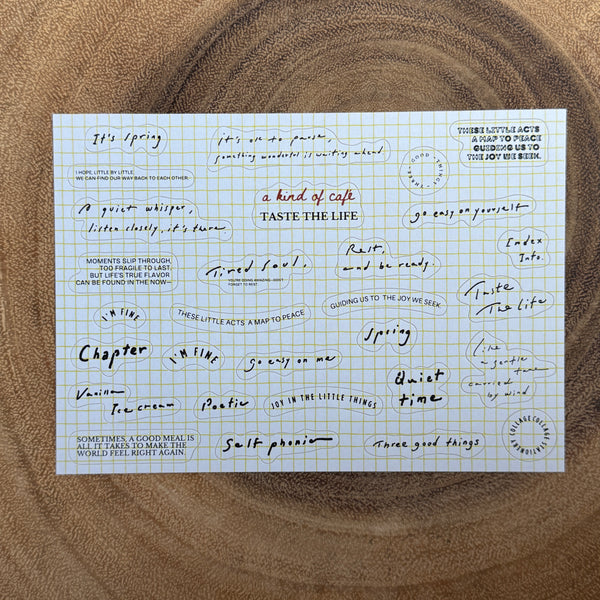 It's spring
it's ok to pause,
something wonderful is waiting ahead
THESE LITTLE ACTS
A MAP TO PEACE
GUIDING US TO
THE JOY WE SEEK.
I HOPE, LITTLE BY LITTLE,
WE CAN FIND OUR WAY BACK TO EACH OTHER.
THREE · GOOD · THINGS ·
a kind of café
TASTE THE LIFE
A quiet whisper,
listen closely, it's there
go easy on yourself
MOMENTS SLIP THROUGH,
TOO FRAGILE TO LAST,
BUT LIFE'S TRUE FLAVOR
CAN BE FOUND IN THE NOW—
Tired Soul,
YOU'RE DOING AMAZING—DON'T
FORGET TO REST
Rest,
and be ready
Index
Info.
I'M FINE
THESE LITTLE ACTS A MAP TO PEACE
GUIDING US TO THE JOY WE SEEK
Taste
The life
Chapter
I'M FINE
go easy on me
Spring
like
a gentle
tune
carried
by wind
Vanilla
Ice cream
Poetic
JOY IN THE LITTLE THINGS
Quiet
time
SOMETIMES, A GOOD MEAL IS
ALL IT TAKES TO MAKE THE
WORLD FEEL RIGHT AGAIN.
Self phonic
Three good things
COLLAGE COLLAGE STATIONERY